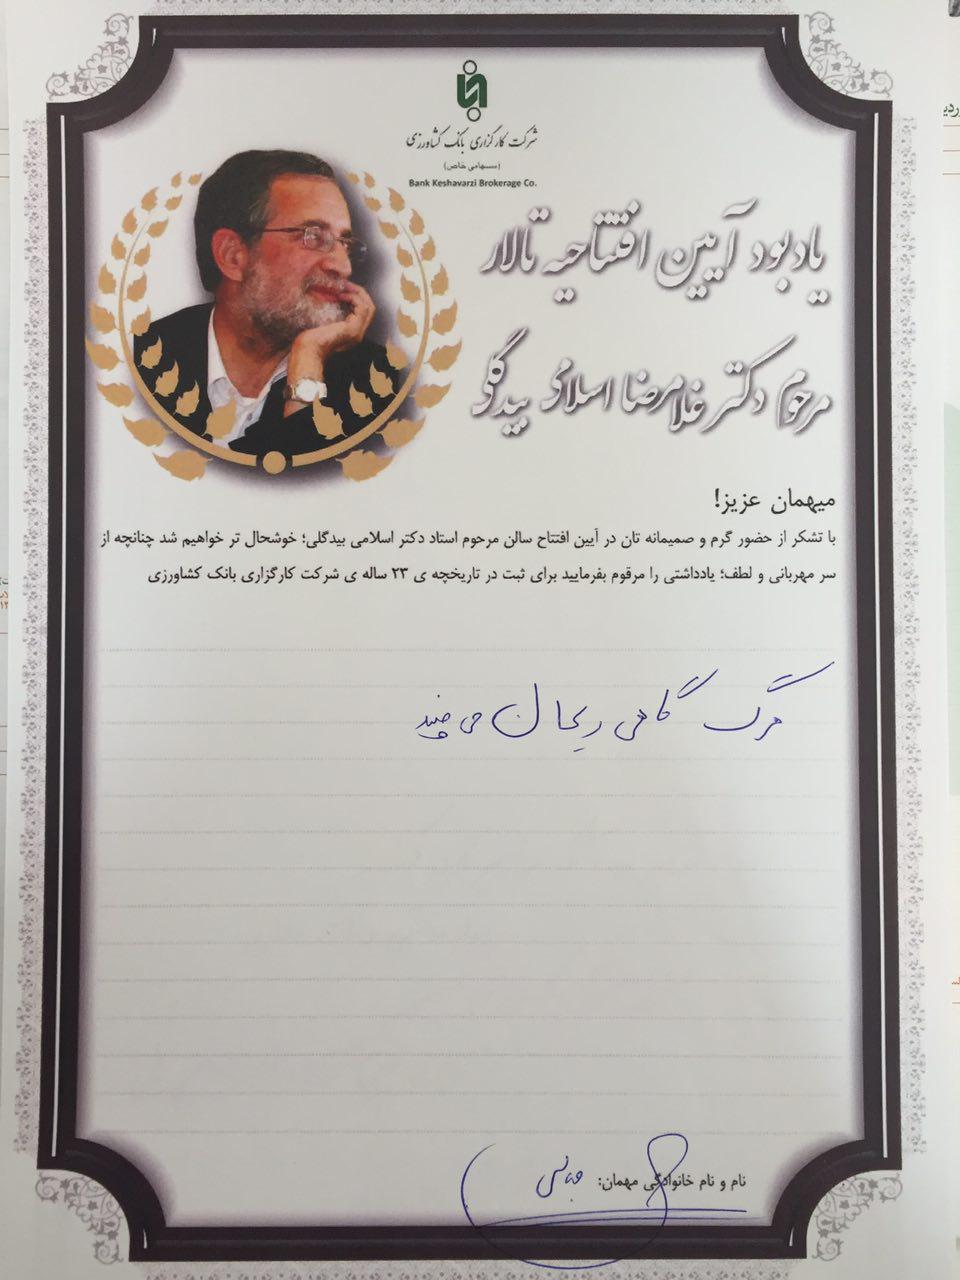 شرکت کارگزاری بانک کشاورزی
(سهامی خاص)
Bank Keshavarzi Brokerage Co.
یادبود آیین افتتاحیه تالار
مرحوم دکتر غلامرضا اسلامی بیدگلی
میهمان عزیز!
با تشکر از حضور گرم و صمیمانه تان در آیین افتتاح سالن مرحوم استاد دکتر اسلامی بیدگلی؛ خوشحال تر خواهیم شد چنانچه از
سر مهربانی و لطف؛ یادداشتی را مرقوم بفرمایید برای ثبت در تاریخچه ی ۲۳ ساله ی شرکت کارگزاری بانک کشاورزی
مرگ گاهی ریحان می چیند
نام و نام خانوادگی مهمان: